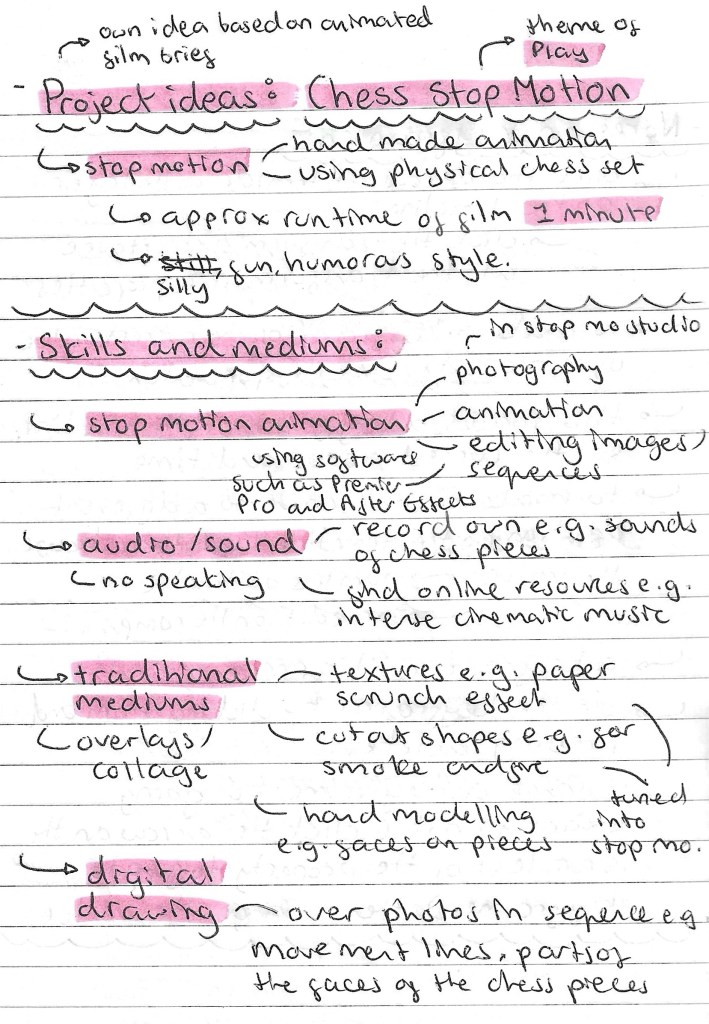 own idea based on animated
film brief
theme of
Play
- Project ideas: Chess Stop Motion
stop motion
hand made animation
using physical chess set
approx runtime of film 1 minute
still, fun, humorous style.
silly
- Skills and mediums:
in stop mo studio
photography
stop motion animation
animation
editing images/
sequences
using software
such as Premier
Pro and After Effects
audio/sound
record own e.g. sounds
of chess pieces
no speaking
find online resources e.g.
intense cinematic music
traditional
mediums
textures e.g. paper
scrunch effect
overlays/
collage
cutout shapes e.g. for
smoke and fire
tuned
into
stop mo.
hand modelling
e.g. faces on pieces
digital
drawing
over photos in sequence e.g
movement lines, parts of
the faces of the chess pieces